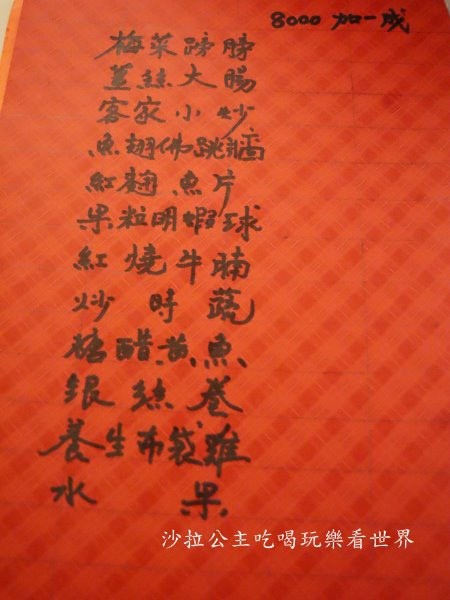 8000 加一成
梅菜蹄膀
薑絲大腸
客家小炒
魚翅佛跳牆
紅麴魚片
果粒明蝦球
紅燒牛腩
炒時蔬
糖醋黃魚
銀絲卷
養生布袋雞
水果
沙拉公主吃喝玩樂看世界